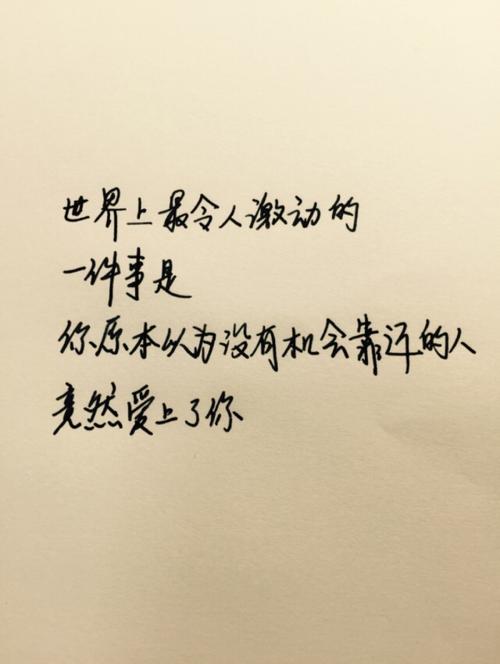 世界上最令人激动的
一件事是
你原本以为没有机会靠近的人
竟然爱上了你